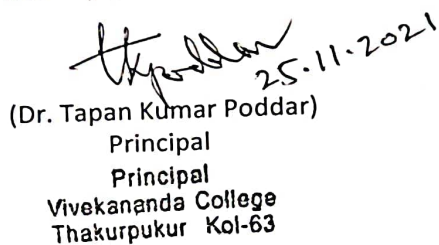 TKPoddar
25.11.2021
(Dr. Tapan Kumar Poddar)
Principal
Principal
Vivekananda College
Thakurpukur Kol-63